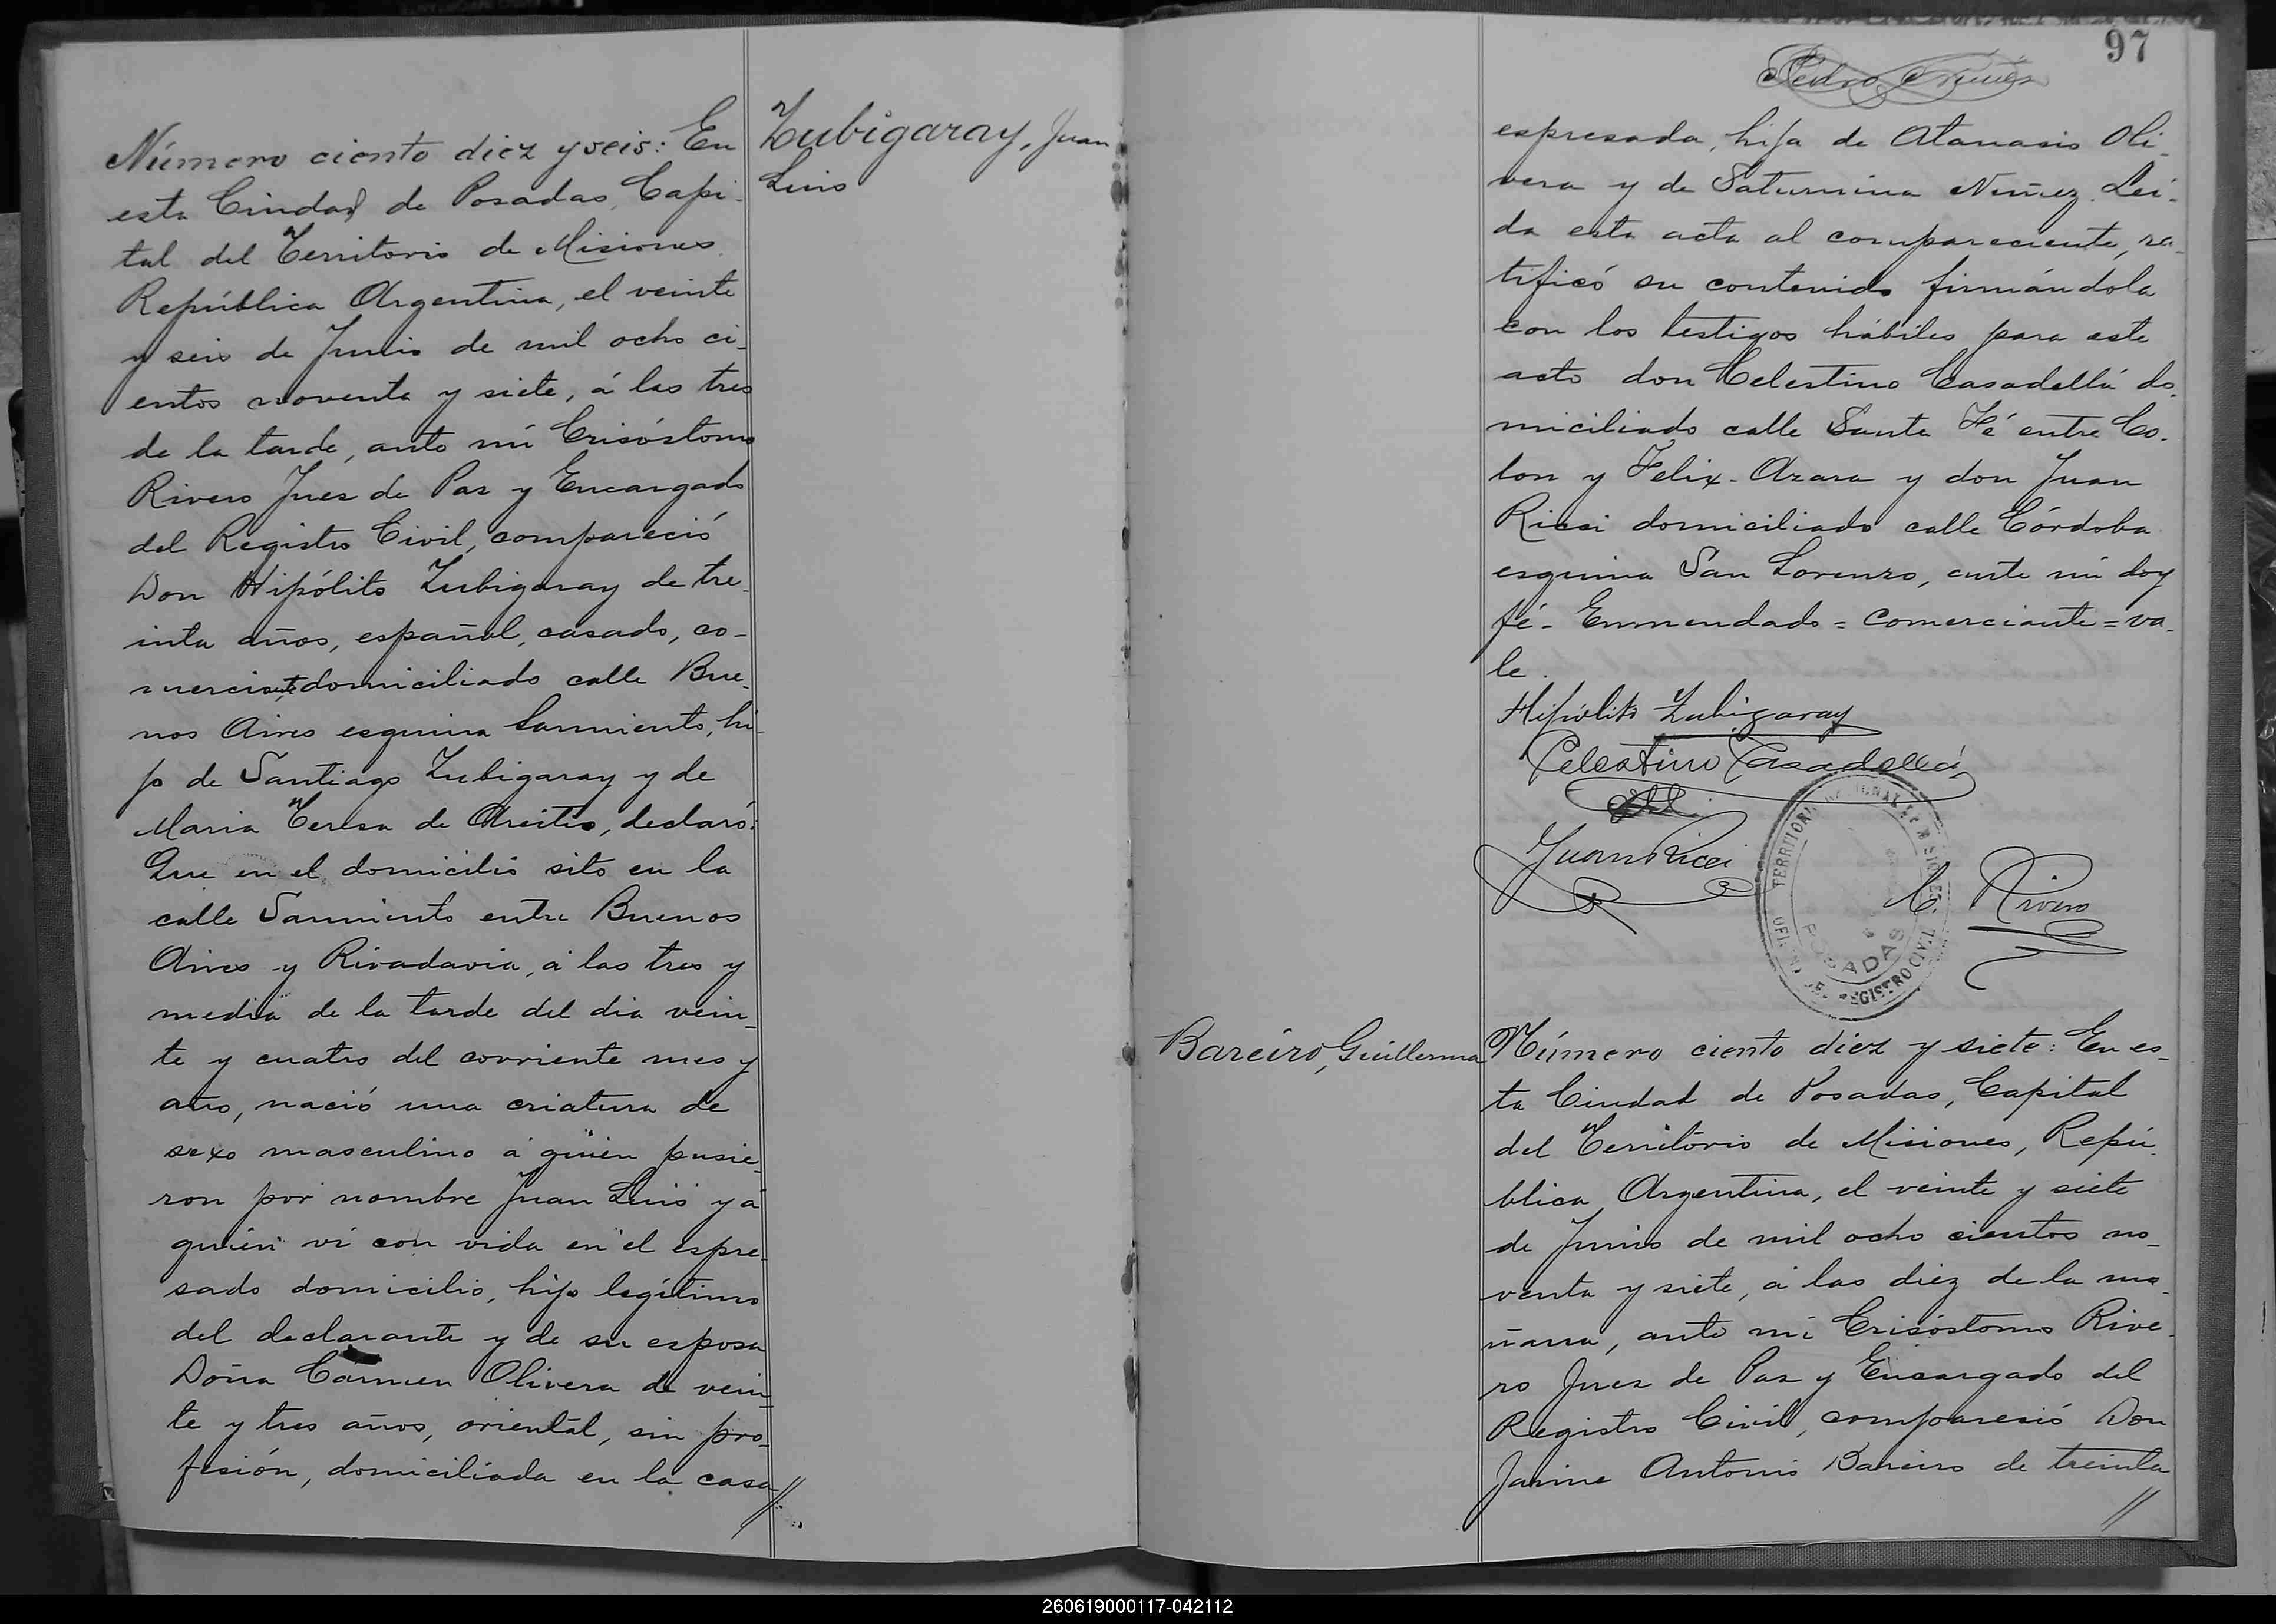 Número ciento diez y seis: En
esta Ciudad de Posadas, Capi-
tal del Territorio de Misiones
República Argentina, el veinte
y seis de Junio de mil ocho ci-
entos noventa y siete, á las tres
de la tarde, ante mí Crisóstomo
Rivero Juez de Paz y Encargado
del Registro Civil, compareció
Don Hipólito Zubigaray de tre-
inta años, español, casado, co-
merciante domiciliado calle Bue-
nos Aires esquina Sarmiento, hi-
jo de Santiago Zubigaray y de
Maria Teresa de Areitio, declaró:
Que en el domicilio sito en la
calle Sarmiento entre Buenos
Aires y Rivadavia, á las tres y
media de la tarde del dia vein-
te y cuatro del corriente mes y
año, nació una criatura de
sexo masculino á quien pusie-
ron por nombre Juan Luis y á
quien ví con vida en el espre-
sado domicilio, hijo legítimo
del declarante y de su esposa
Doña Cármen Olivera de vein-
te y tres años, oriental, sin pro-
fesión, domiciliada en la casa
//
Zubigaray, Juan
Luis
97
Pedro
espresada, hija de Atanasio Oli-
vera y de Saturnina Nuñez. Lei-
da esta acta al compareciente, ra-
tificó su contenido firmándola
con los testigos hábiles para este
acto don Celestino Casadellá do-
miciliado calle Santa Fé entre Co-
lon y Felix-Azara y don Juan
Ricci domiciliado calle Córdoba
esquina San Lorenzo, ante mí doy
fé- Enmendado = comerciante = va-
le.
Hipólito Zubigaray
Celestino Casadellá
Juan Ricci
C. Rivero
TERRITORIO NACIONAL DE MISIONES
POSADAS
OFICINA DEL REGISTRO CIVIL
Bareiro, Guillerma
Número ciento diez y siete: En es-
ta Ciudad de Posadas, Capital
del Territorio de Misiones, Repú-
blica Argentina, el veinte y siete
de Junio de mil ocho cientos no-
venta y siete, á las diez de la ma-
ñana, ante mí Crisóstomo Rive-
ro Juez de Paz y Encargado del
Registro Civil, compareció Don
Jaime Antonio Bareiro de treinta
//
260619000117-042112